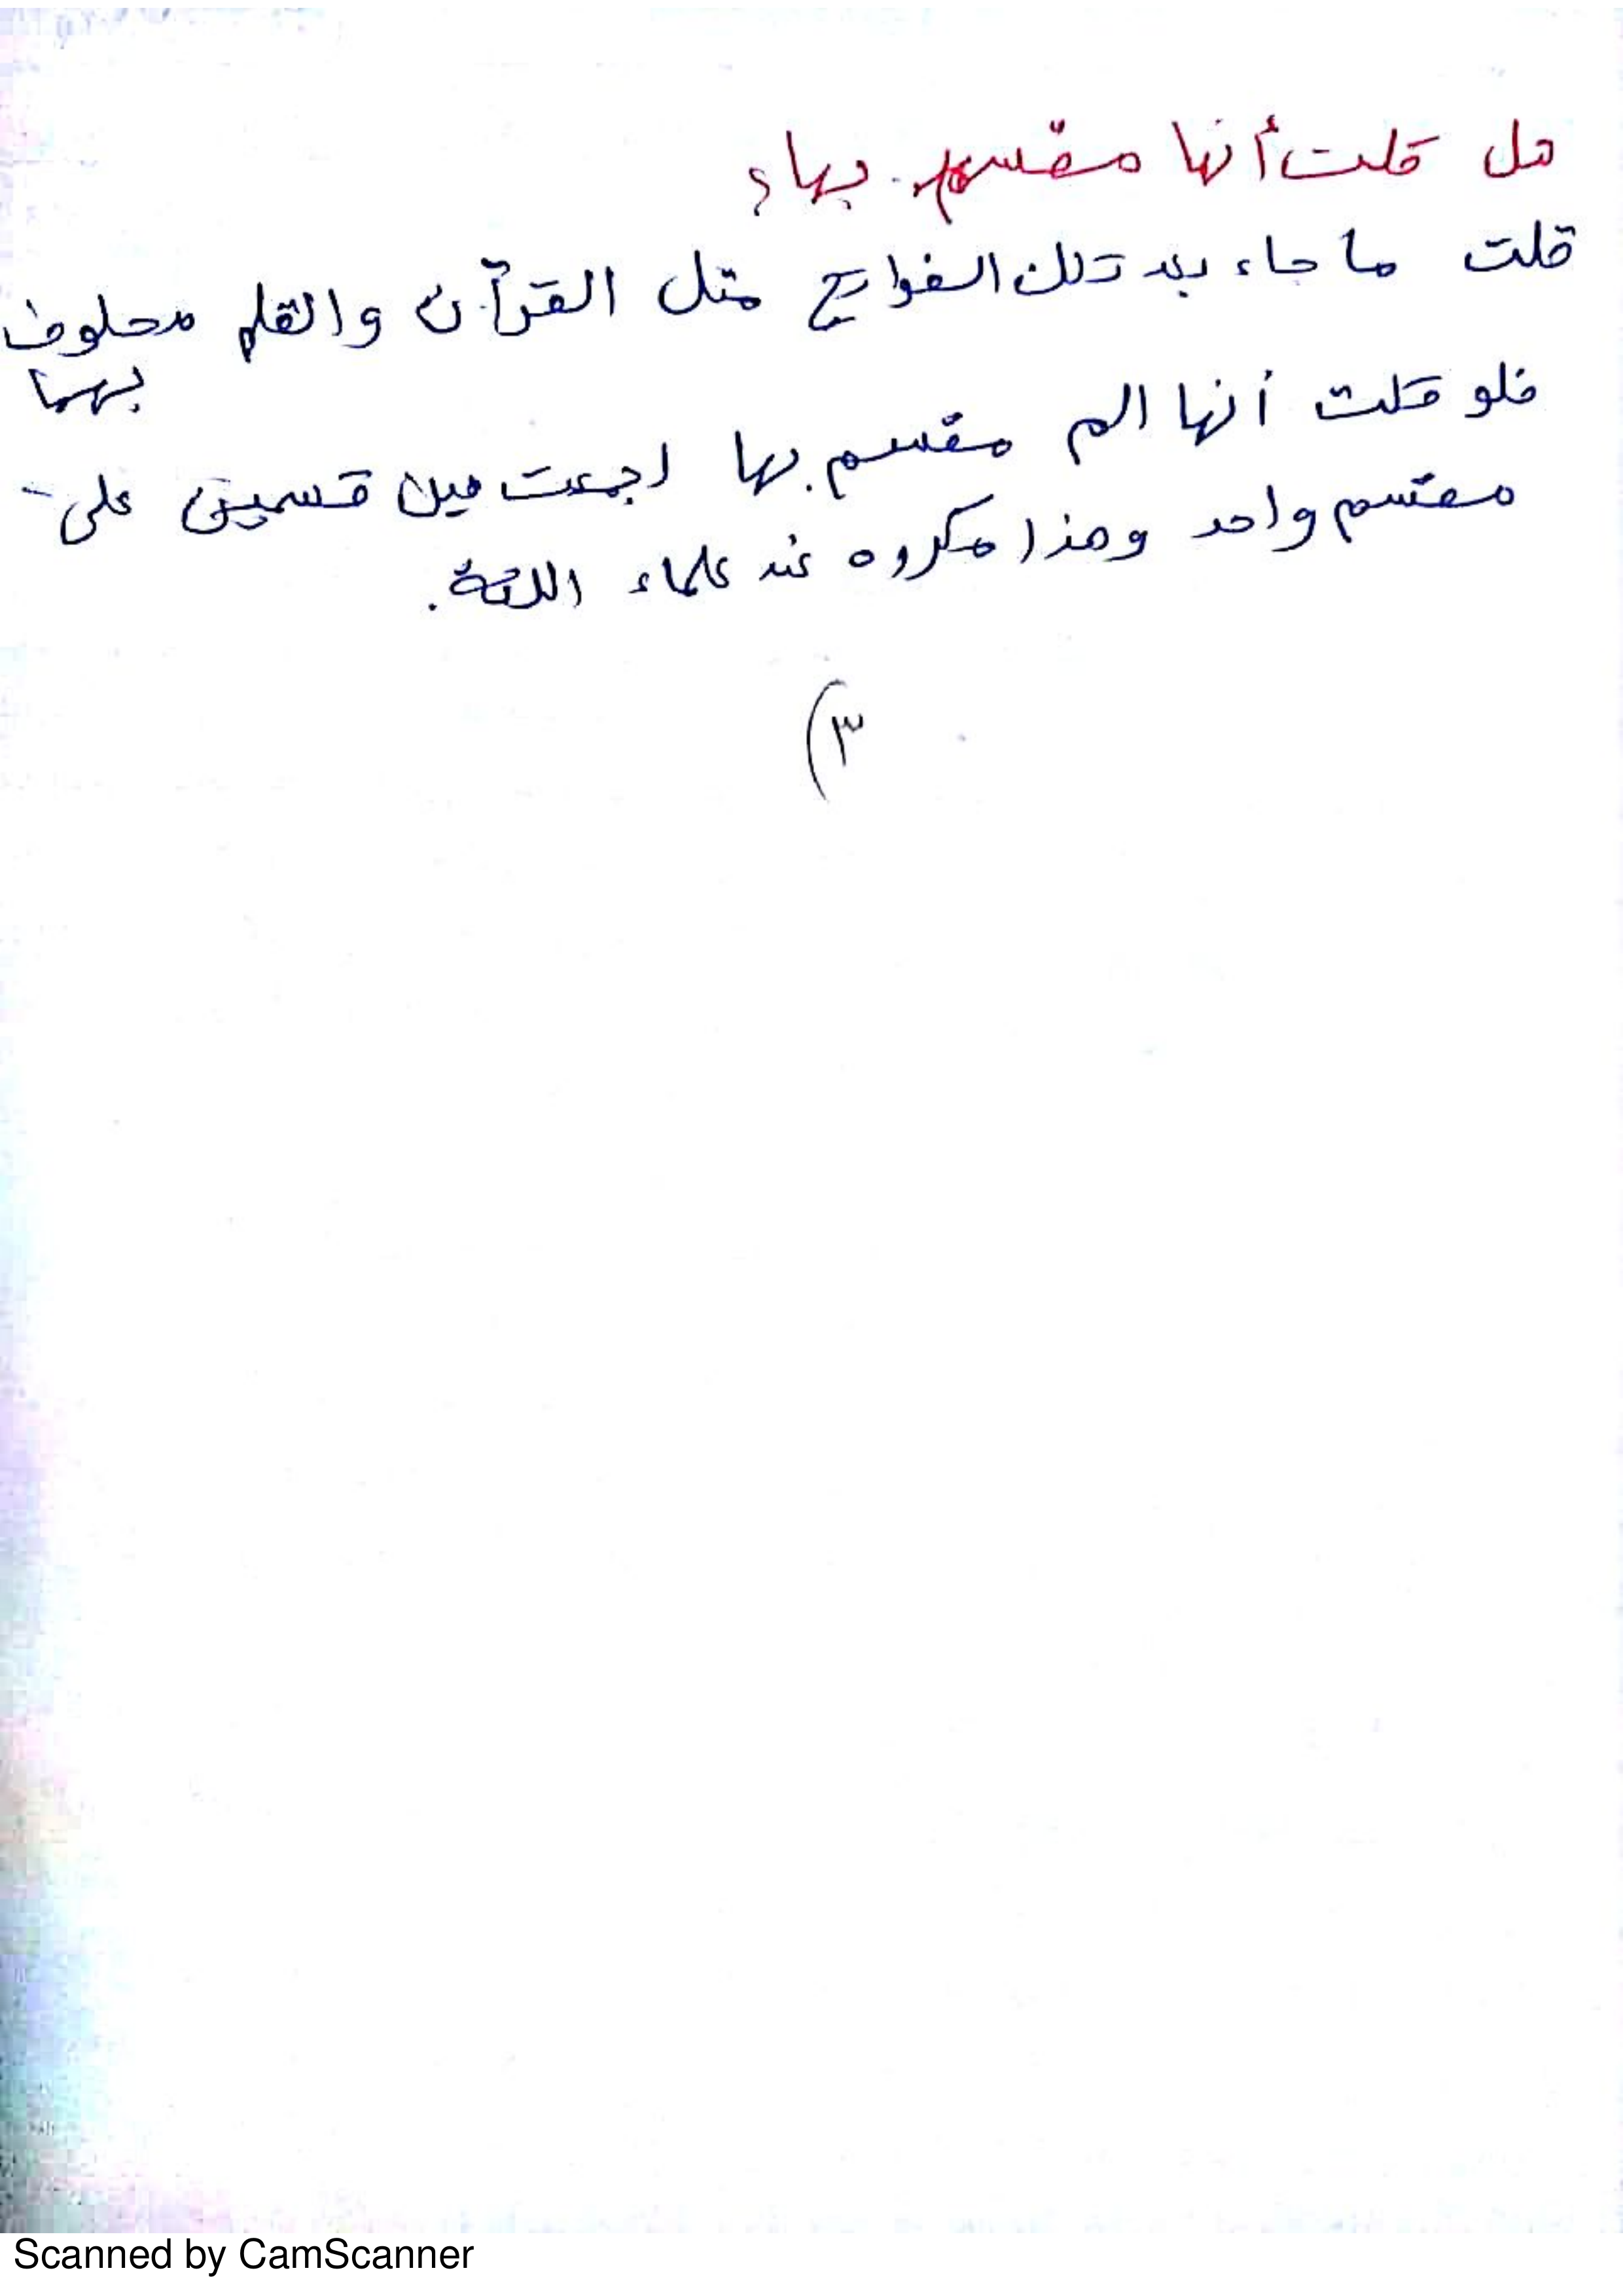 هل قلت أنها مقسم بها؟
قلت ما جاء بعد تلك الفواتح مثل القرآن والقلم محلوف
بهما
فلو قلت أنها الم مقسم بها لجمعت بين قسمين على
مقسم واحد وهذا مكروه عند علماء اللغة.
٣)
Scanned by CamScanner